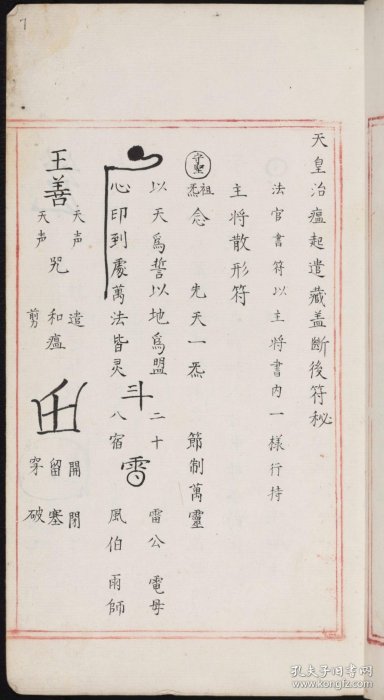 天皇治瘟起遣藏盖斷後符秘
法官書符以主將書內一樣行持
主將散形符
祖炁念 先天一炁 節制萬靈
以天爲誓以地爲盟 二十 雷公 電母
心印到處萬法皆灵 斗 八宿 雷 風伯 雨師
王善 天声 天声 咒 遣 和瘟 剪 開閉 留塞 穿破
7
孔夫子旧书网
www.kongfz.com